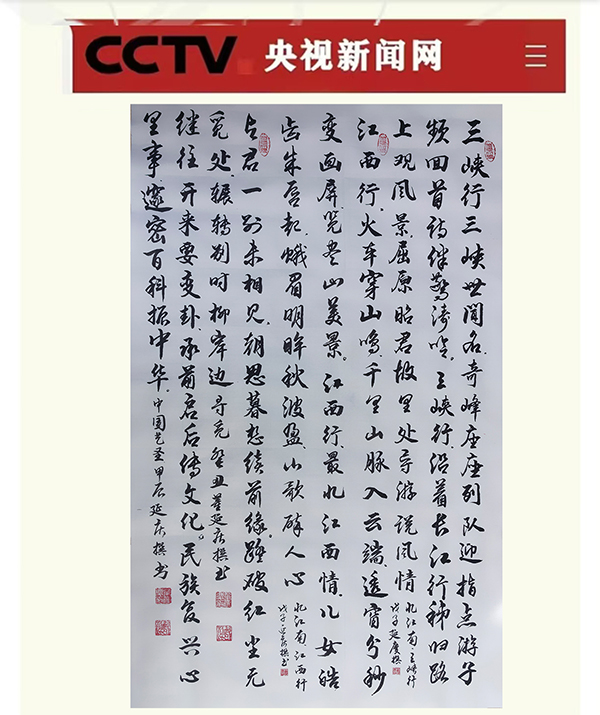 CCTV 央视新闻网
三峡行三峡世闻名.奇峰座座列队迎指点游子
频回首詩伴驚涛吟.三峡行.沿着长江行秭归路
上观风景.屈原昭君故里处导游说风情
忆江南.三峡行
戊子延庆撰
江西行.火车穿山鸣.千里山脉入云端.透窗分秒
变画屏.览尽山美景。江西行.最忆江西情.儿女皓
齿朱唇起.蛾眉明眸秋波盈.山歌醉人心
忆江南.江西行
戊子延庆撰书
与君一别未相见.朝思暮想续前缘.踏破红尘无
觅处.辗转别时柳岸边
寻觅 董延庆撰书
继往开来要变卦.承前启后传文化。民族复兴心
里事.邃密百科振中华。
中国艺圣甲辰延庆撰书